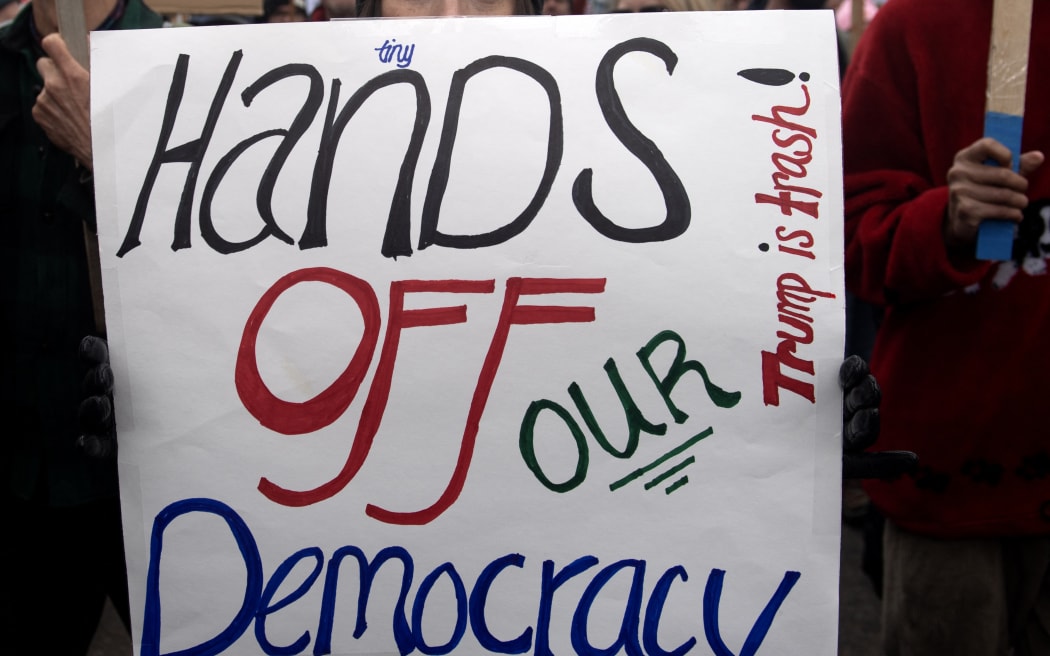 tiny
HanDS
OFF
OUR
Democracy
Trump is trash!